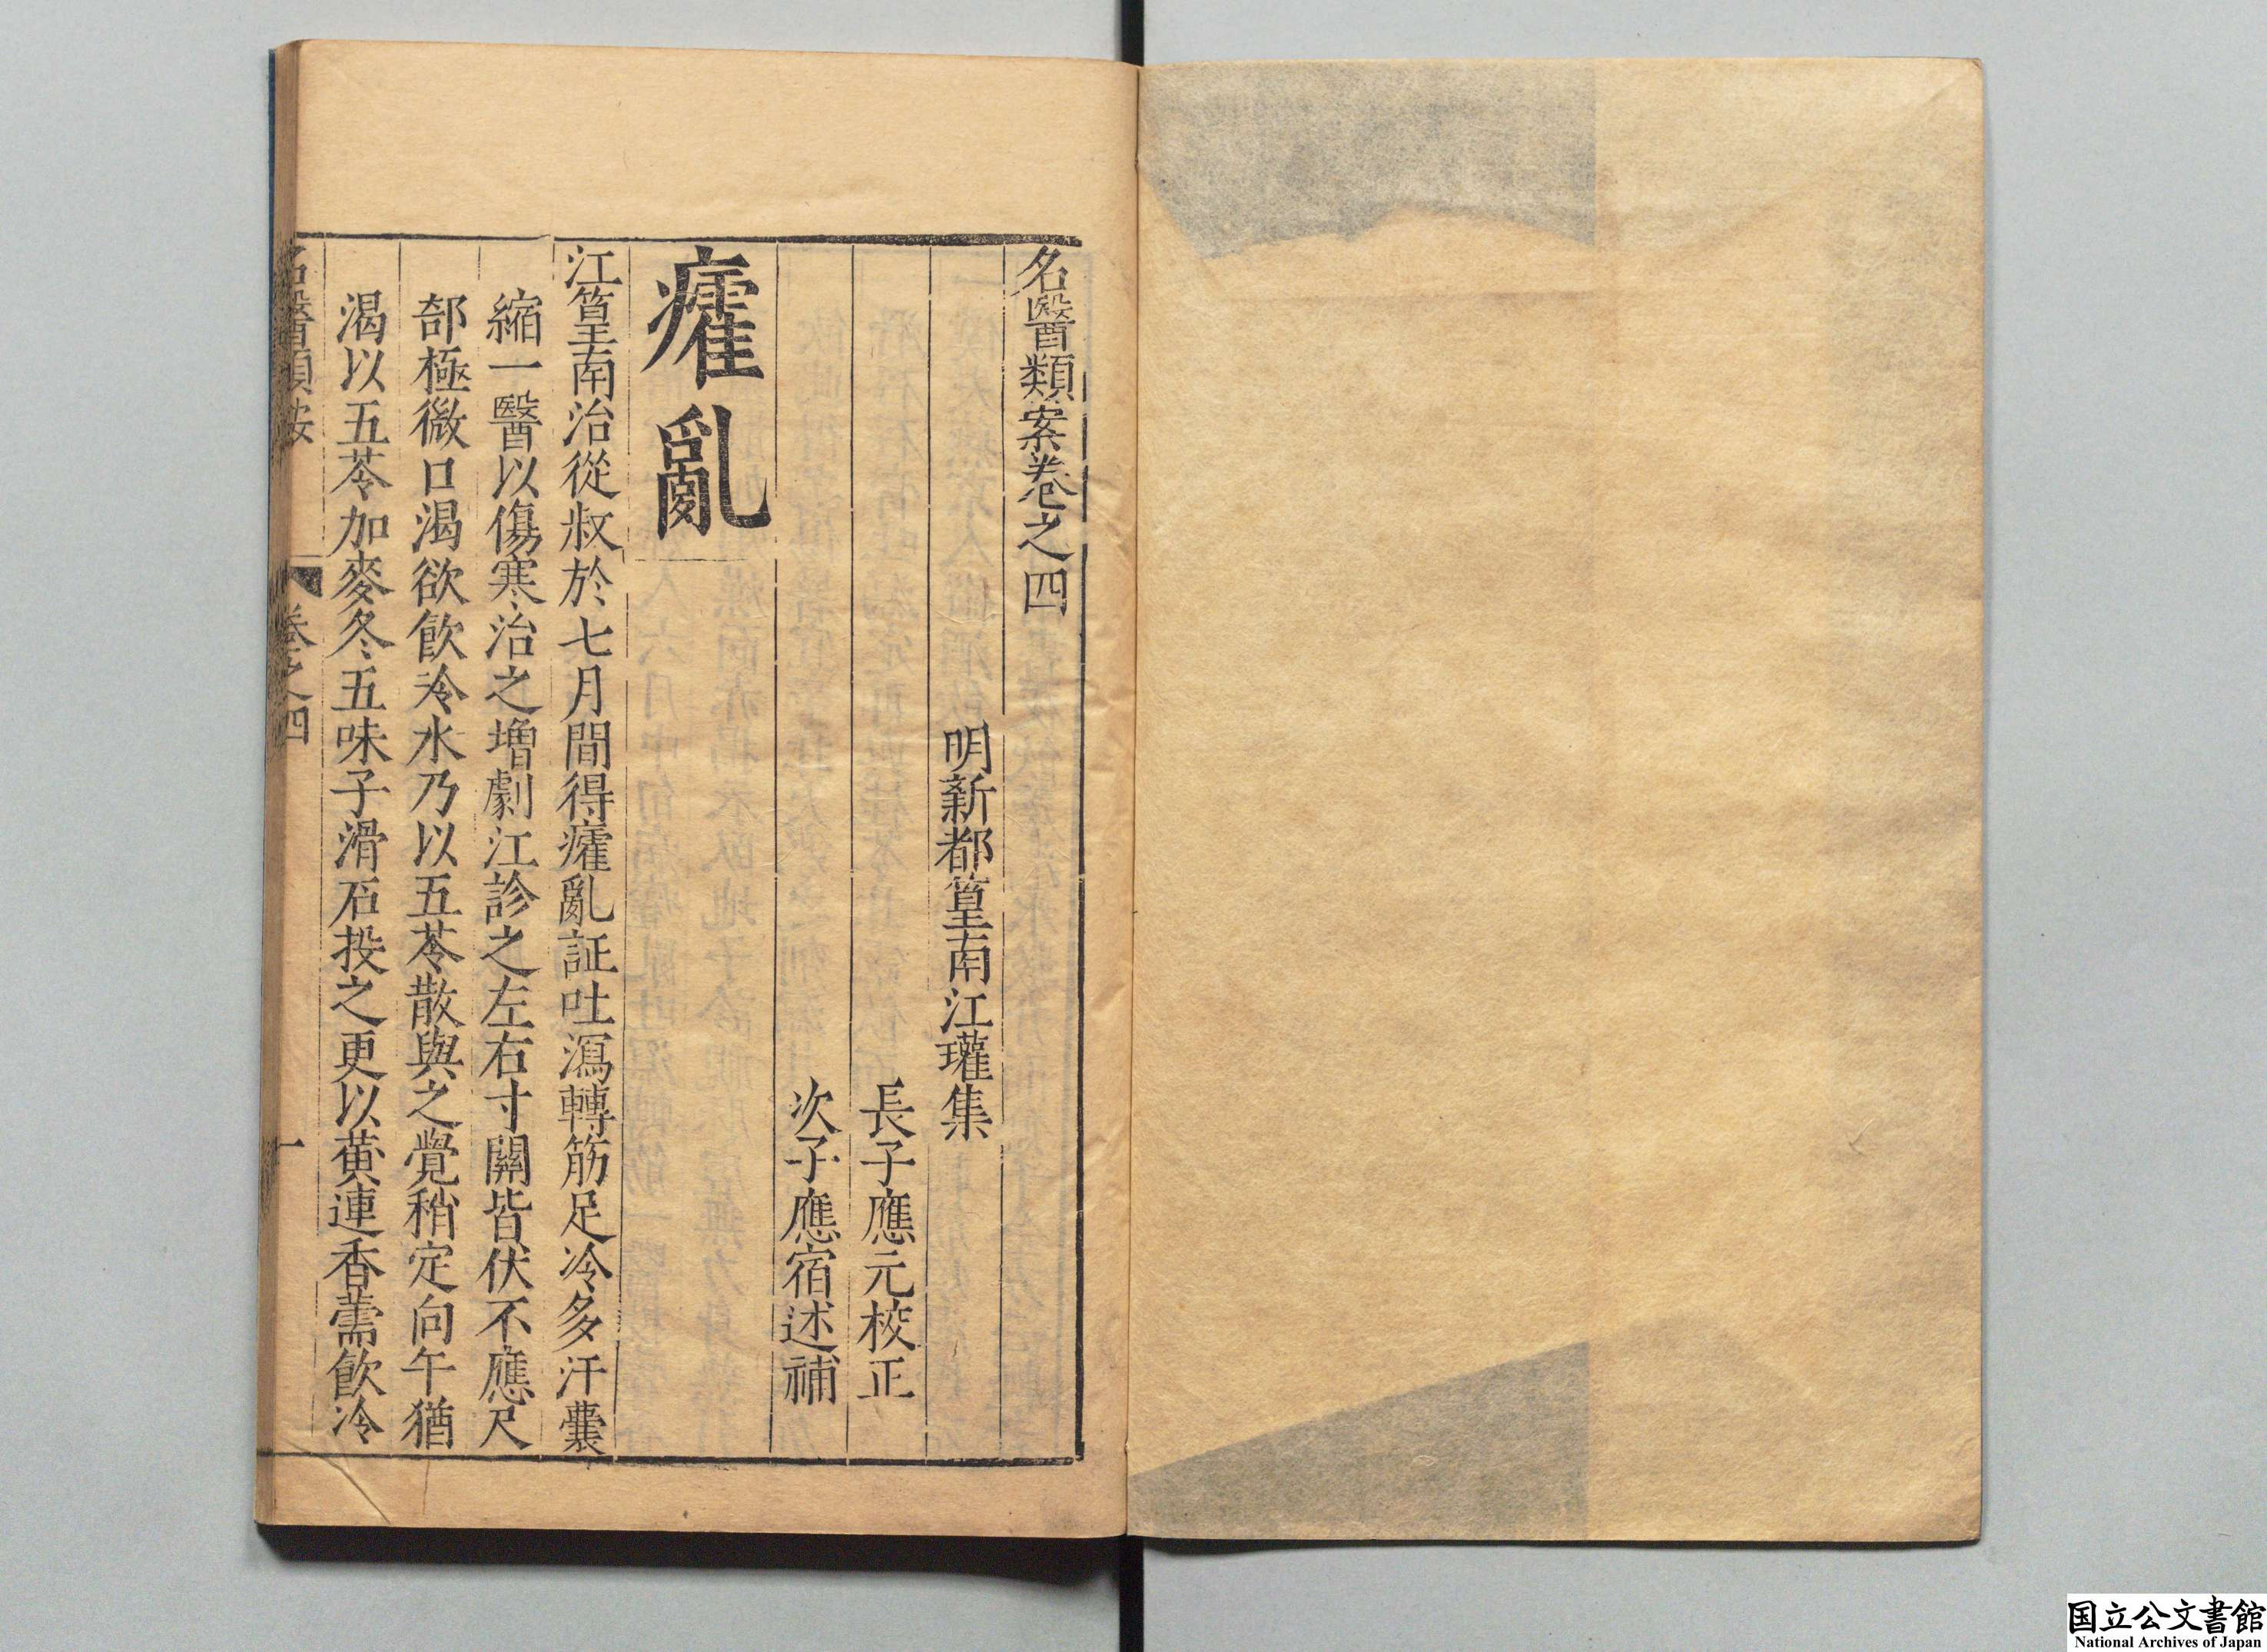 名醫類案卷之四
明新都篁南江瓘集
長子應元校正
次子應宿述補
癨亂
江篁南治從叔於七月間得癨亂証吐瀉轉筋足冷多汗囊
縮一醫以傷寒治之增劇江診之左右寸關皆伏不應尺
部極微口渴欲飲冷水乃以五苓散與之覺稍定向午猶
渴以五苓加麥冬五味子滑石投之更以黄連香薷飲冷
名醫類按
卷之四
一
国立公文書館
National Archives of Japan